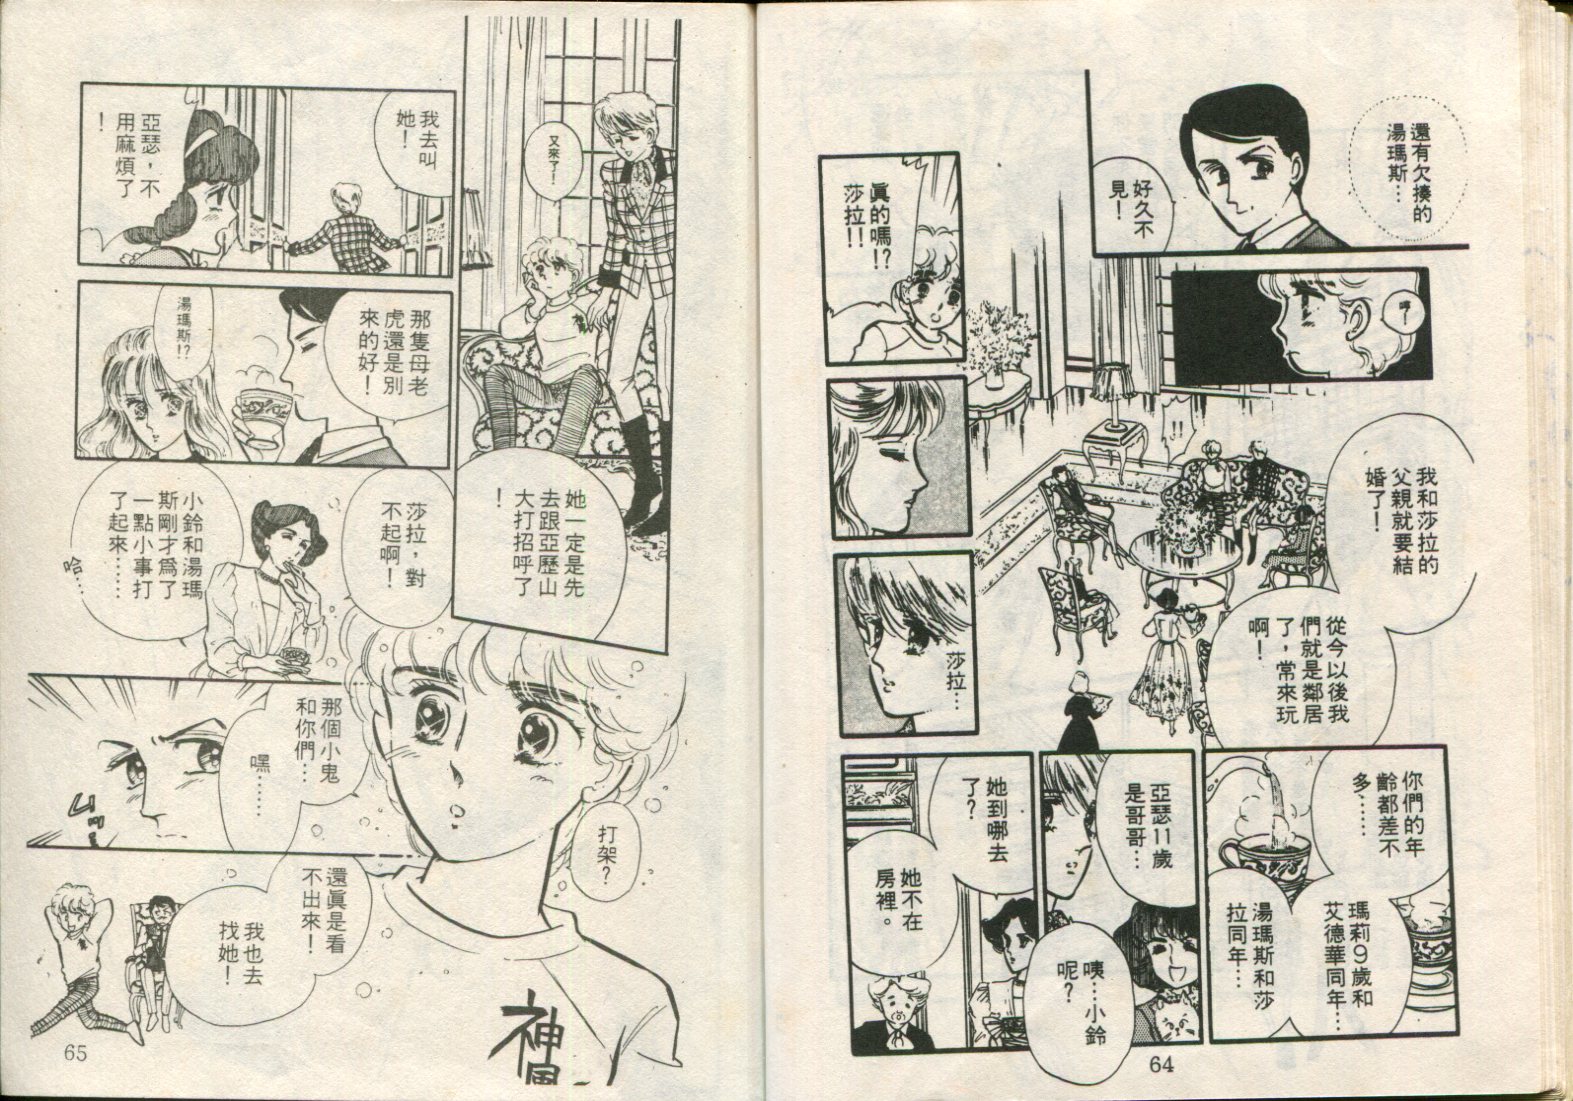 還有欠揍的
湯瑪斯…
好久不
見！
哼！
眞的嗎!?
莎拉!!
我和莎拉的
父親就要結
婚了！
從今以後我
們就是鄰居
了，常來玩
啊！
莎拉…
你們的年
齡都差不
多……
瑪莉9歲和
艾德華同年…
湯瑪斯和莎
拉同年…
亞瑟11歲
是哥哥…
咦…小鈴
呢？
她到哪去
了？
她不在
房裡。
64
又來了！
她一定是先
去跟亞歷山
大打招呼了
！
我去叫
她！
亞瑟，不
用麻煩了
！
那隻母老
虎還是別
來的好！
湯瑪斯!?
莎拉，對
不起啊！
小鈴和湯瑪
斯剛才爲了
一點小事打
了起來……
哈…
打架？
那個小鬼
和你們…
嘿……
還眞是看
不出來！
我也去
找她！
神風
65